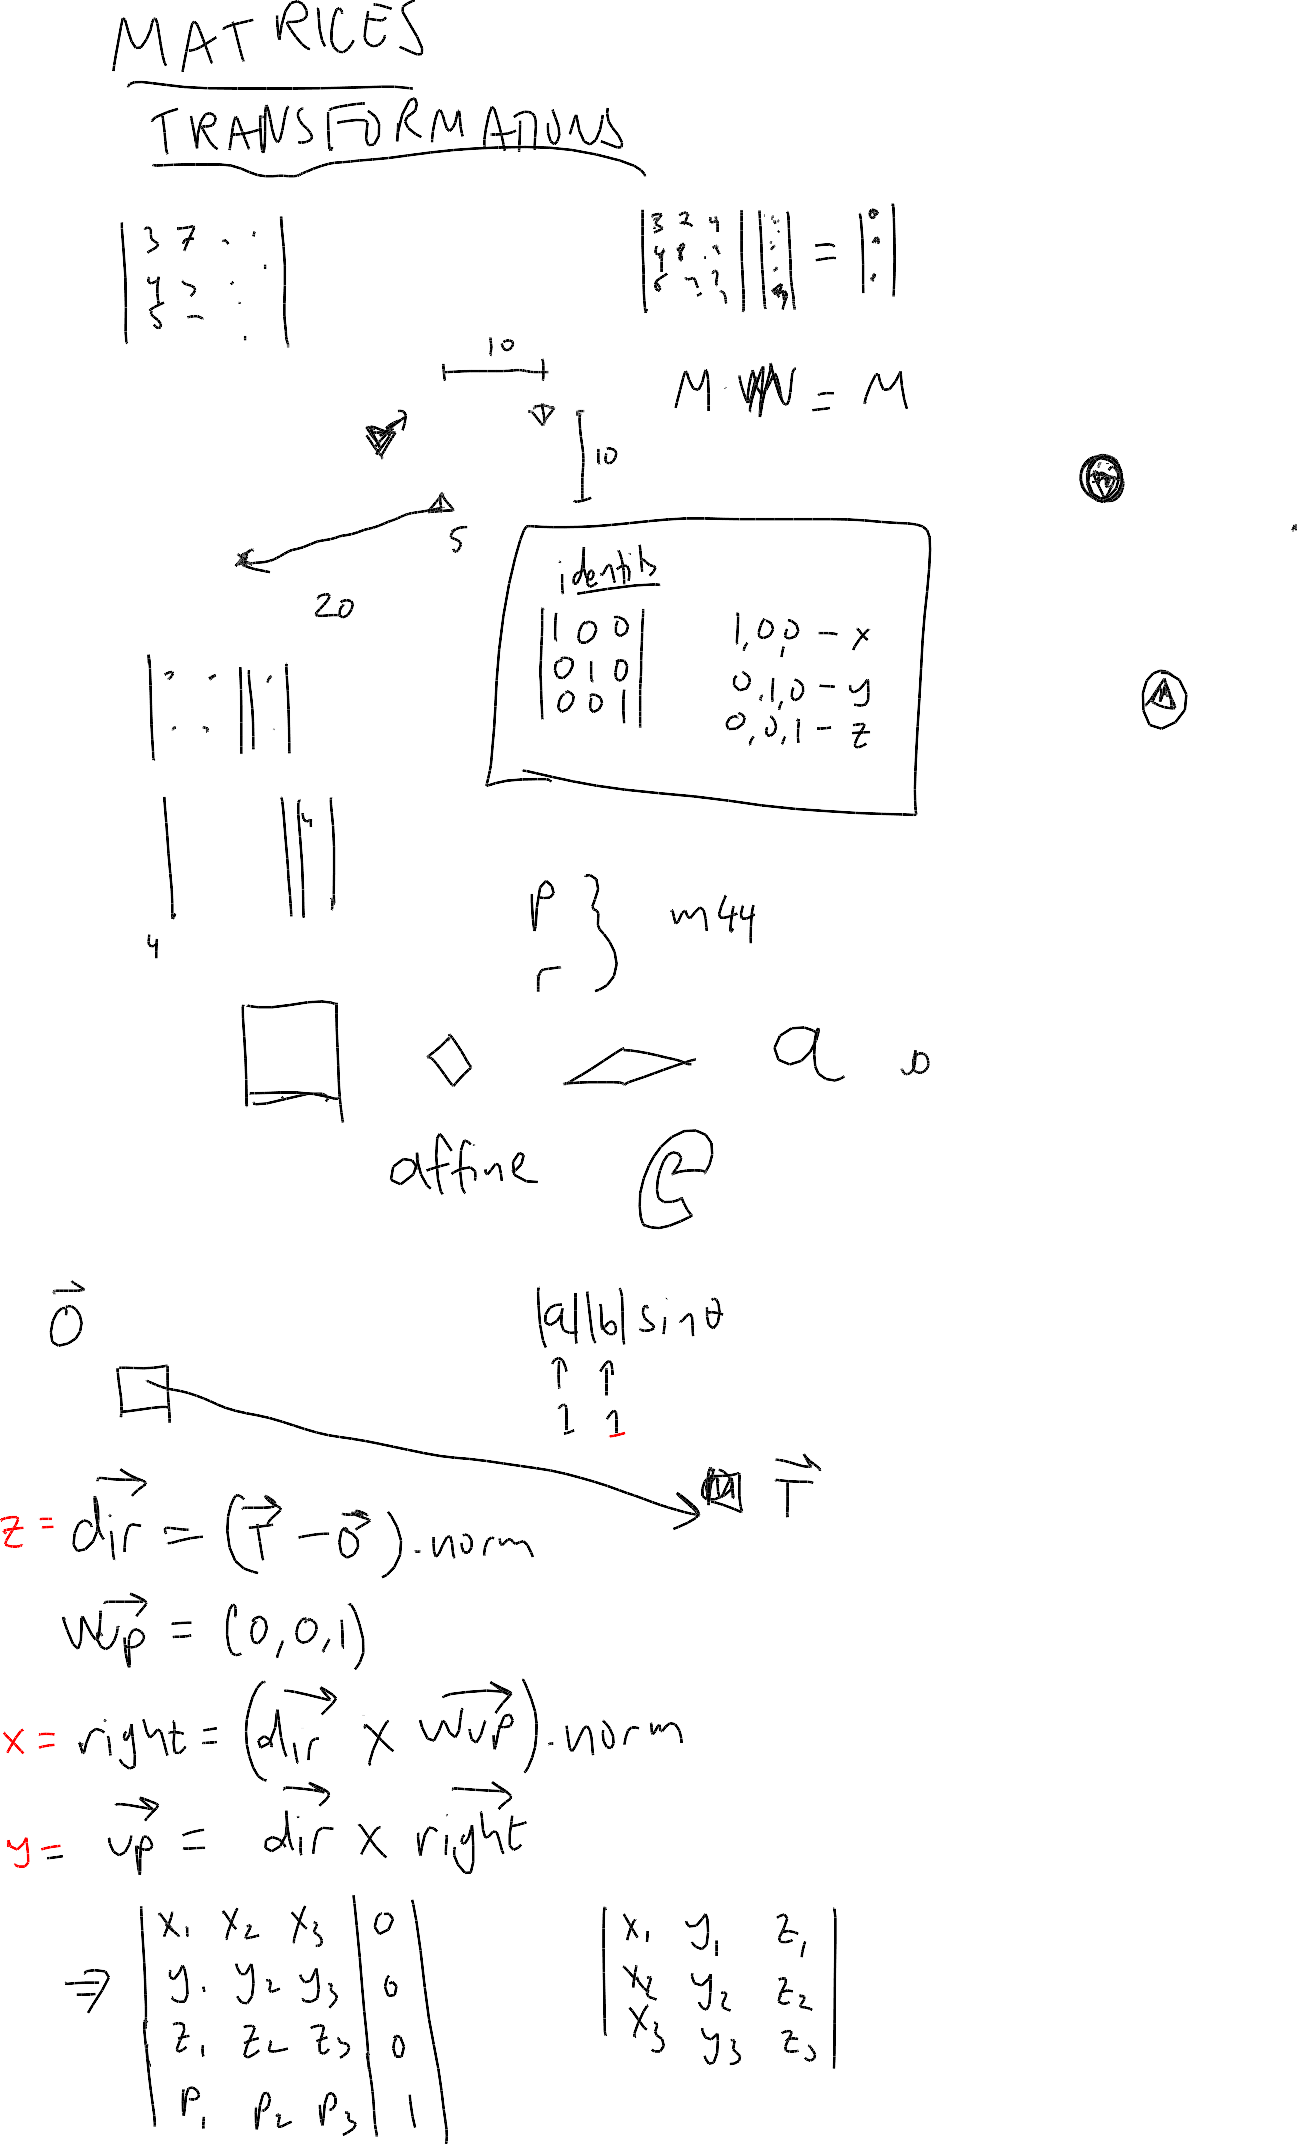 MATRICES
TRANSFORMATIONS
3 7
4
5
3 2 4
=
10
M = M
10
5
20
identity
1 0 0
0 1 0
0 0 1
1,0,0 - x
0,1,0 - y
0,0,1 - z
4
4
p
r
m44
a
affine
O
|a||b| sin θ
↑ ↑
1 1
T
z = dir = (T - O).norm
wup = (0,0,1)
x = right = (dir x wup).norm
y = up = dir x right
⇒
x1 x2 x3 0
y1 y2 y3 0
z1 z2 z3 0
P1 P2 P3 1
x1 y1 z1
x2 y2 z2
x3 y3 z3